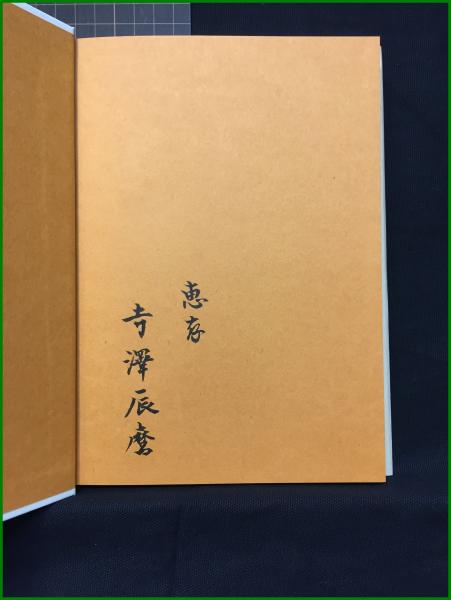 恵存
寺澤辰麿